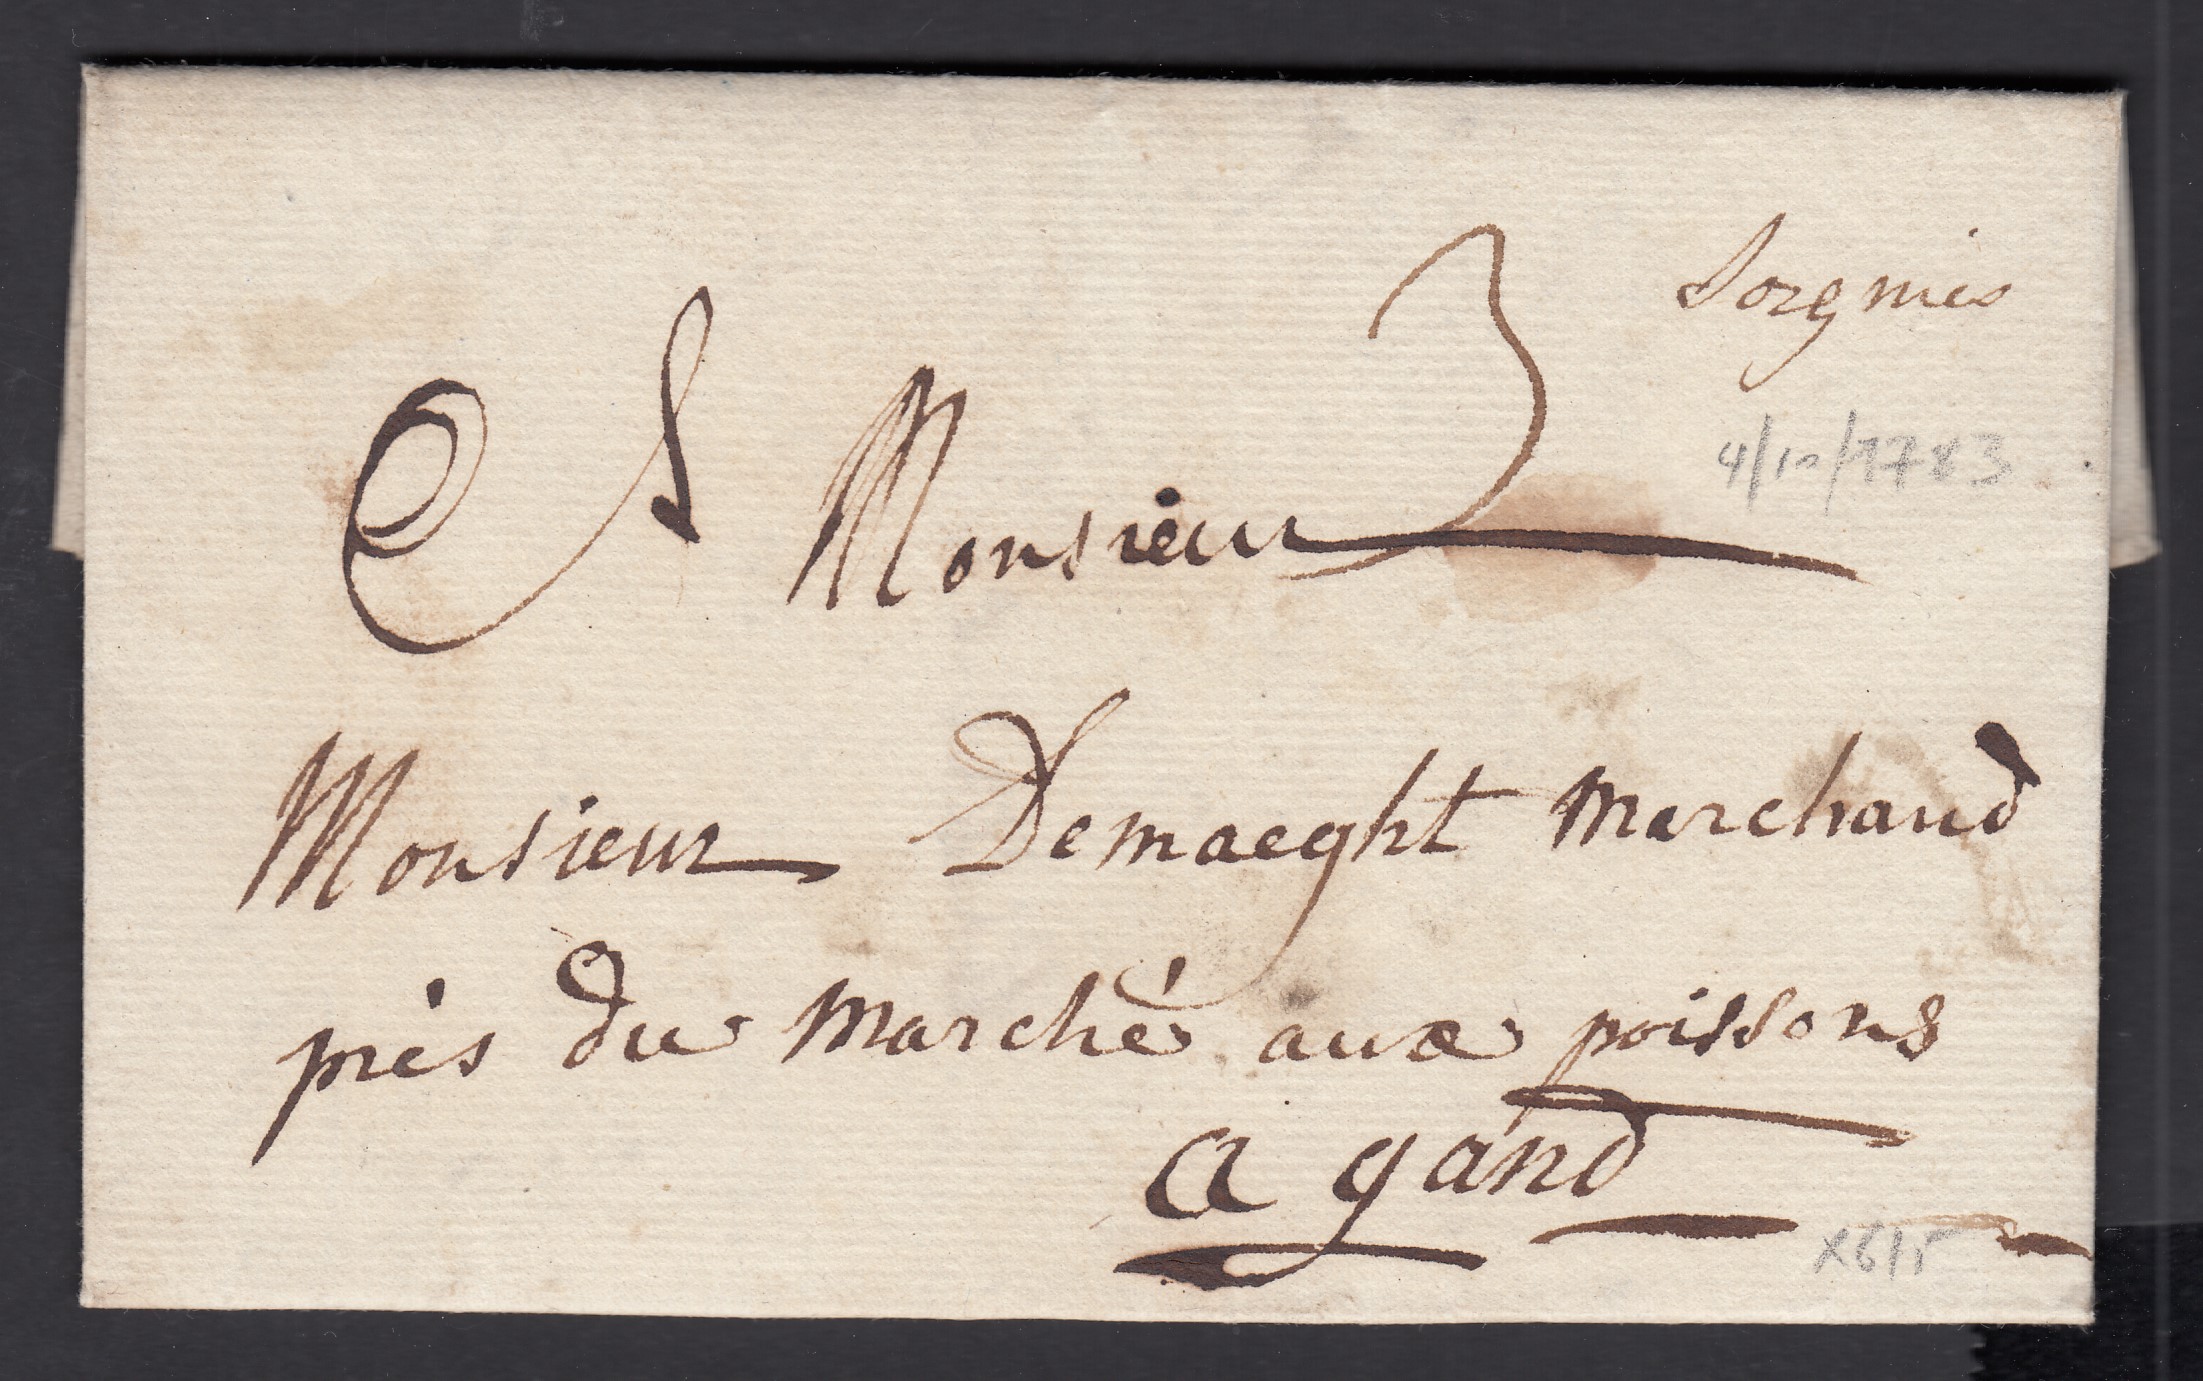 Sorgnies
4/10/1783
A Monsieur
3
Monsieur Demaeght Marchand
près du Marché aux poissons
a gand